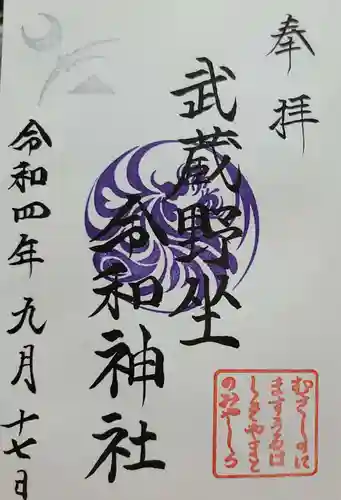 奉拝
武蔵野坐
令和神社
令和四年九月十七日
むさしのに
ますうるは
しきやまと
のみやしろ